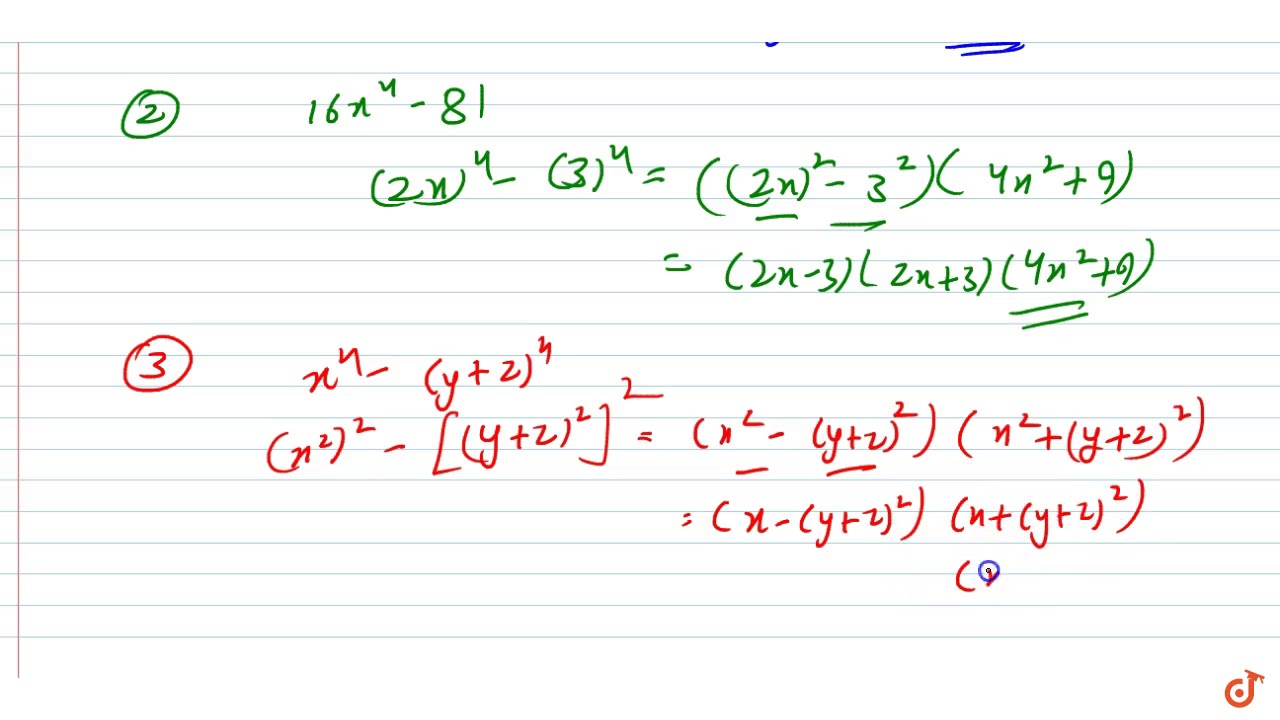 ② 16x⁴ - 81
(2x)⁴ - (3)⁴ = ((2x)² - 3²)(4x² + 9)
= (2x-3)(2x+3)(4x²+9)
③ x⁴ - (y+z)⁴
(x²)² - [(y+z)²]² = (x² - (y+z)²) (x² + (y+z)²)
= (x - (y+z)²) (x + (y+z)²)
(x